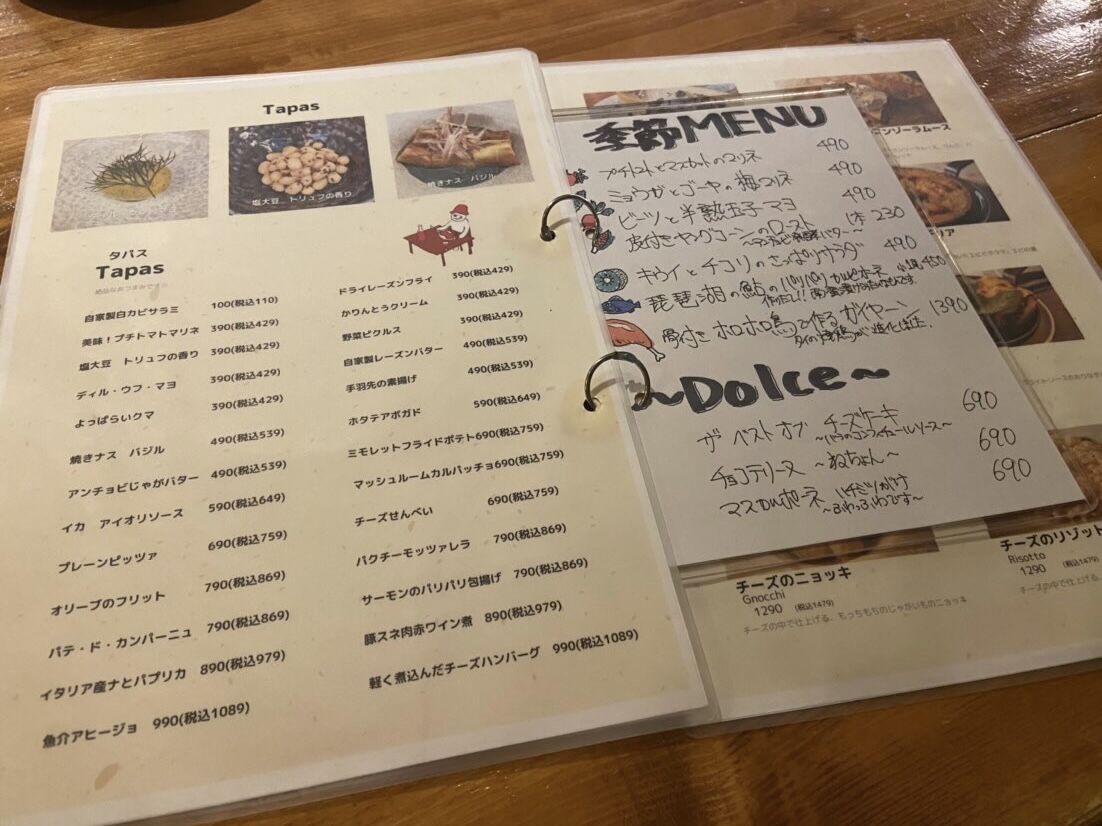 Tapas
塩大豆 トリュフの香り
焼きナス バジル
タパス
Tapas
絶品なおつまみです☆
自家製白カビサラミ 100(税込110)
美味！プチトマトマリネ 390(税込429)
塩大豆 トリュフの香り 390(税込429)
ディル・ウフ・マヨ 390(税込429)
よっぱらいクマ 390(税込429)
焼きナス バジル 490(税込539)
アンチョビじゃがバター 490(税込539)
イカ アイオリソース 590(税込649)
プレーンピッツァ 690(税込759)
オリーブのフリット 790(税込869)
パテ・ド・カンパーニュ 790(税込869)
イタリア産ナとパプリカ 890(税込979)
魚介アヒージョ 990(税込1089)
ドライレーズンフライ 390(税込429)
かりんとうクリーム 390(税込429)
野菜ピクルス 390(税込429)
自家製レーズンバター 490(税込539)
手羽先の素揚げ 490(税込539)
ホタテアボガド 590(税込649)
ミモレットフライドポテト690(税込759)
マッシュルームカルパッチョ690(税込759)
チーズせんべい 690(税込759)
パクチーモッツァレラ 790(税込869)
サーモンのパリパリ包揚げ 790(税込869)
豚スネ肉赤ワイン煮 890(税込979)
軽く煮込んだチーズハンバーグ 990(税込1089)
季節MENU
プチトマトとマスカットのマリネ 490
ミョウガとゴーヤの梅マリネ 490
ビーツと半熟玉子マヨ 490
皮付きヤングコーンのロースト 1本 230
〜アンチョビ発酵バター〜
キウイとチコリのさっぱりサラダ 490
琵琶湖の鮎のパリパリカルピオーネ 小2尾 450
骨付きホロホロ鳥で作るガイヤーン 1390
タイの焼鳥が進化ば止.
〜Dolce〜
ザ ベスト オブ チーズケーキ 690
〜バラのコンフィチュールソース〜
チョコテリーヌ 〜ねちょん〜 690
マスカルポーネ ハチミツがけ 690
〜ふわっふわです〜
ゴンゾーラムース
チーズのニョッキ
Gnocchi
1290 (税込1479)
チーズの中で仕上げる、もっちもちのじゃがいものニョッキ
チーズのリゾット
Risotto
1290 (税込1479)
チーズの中で仕上げる